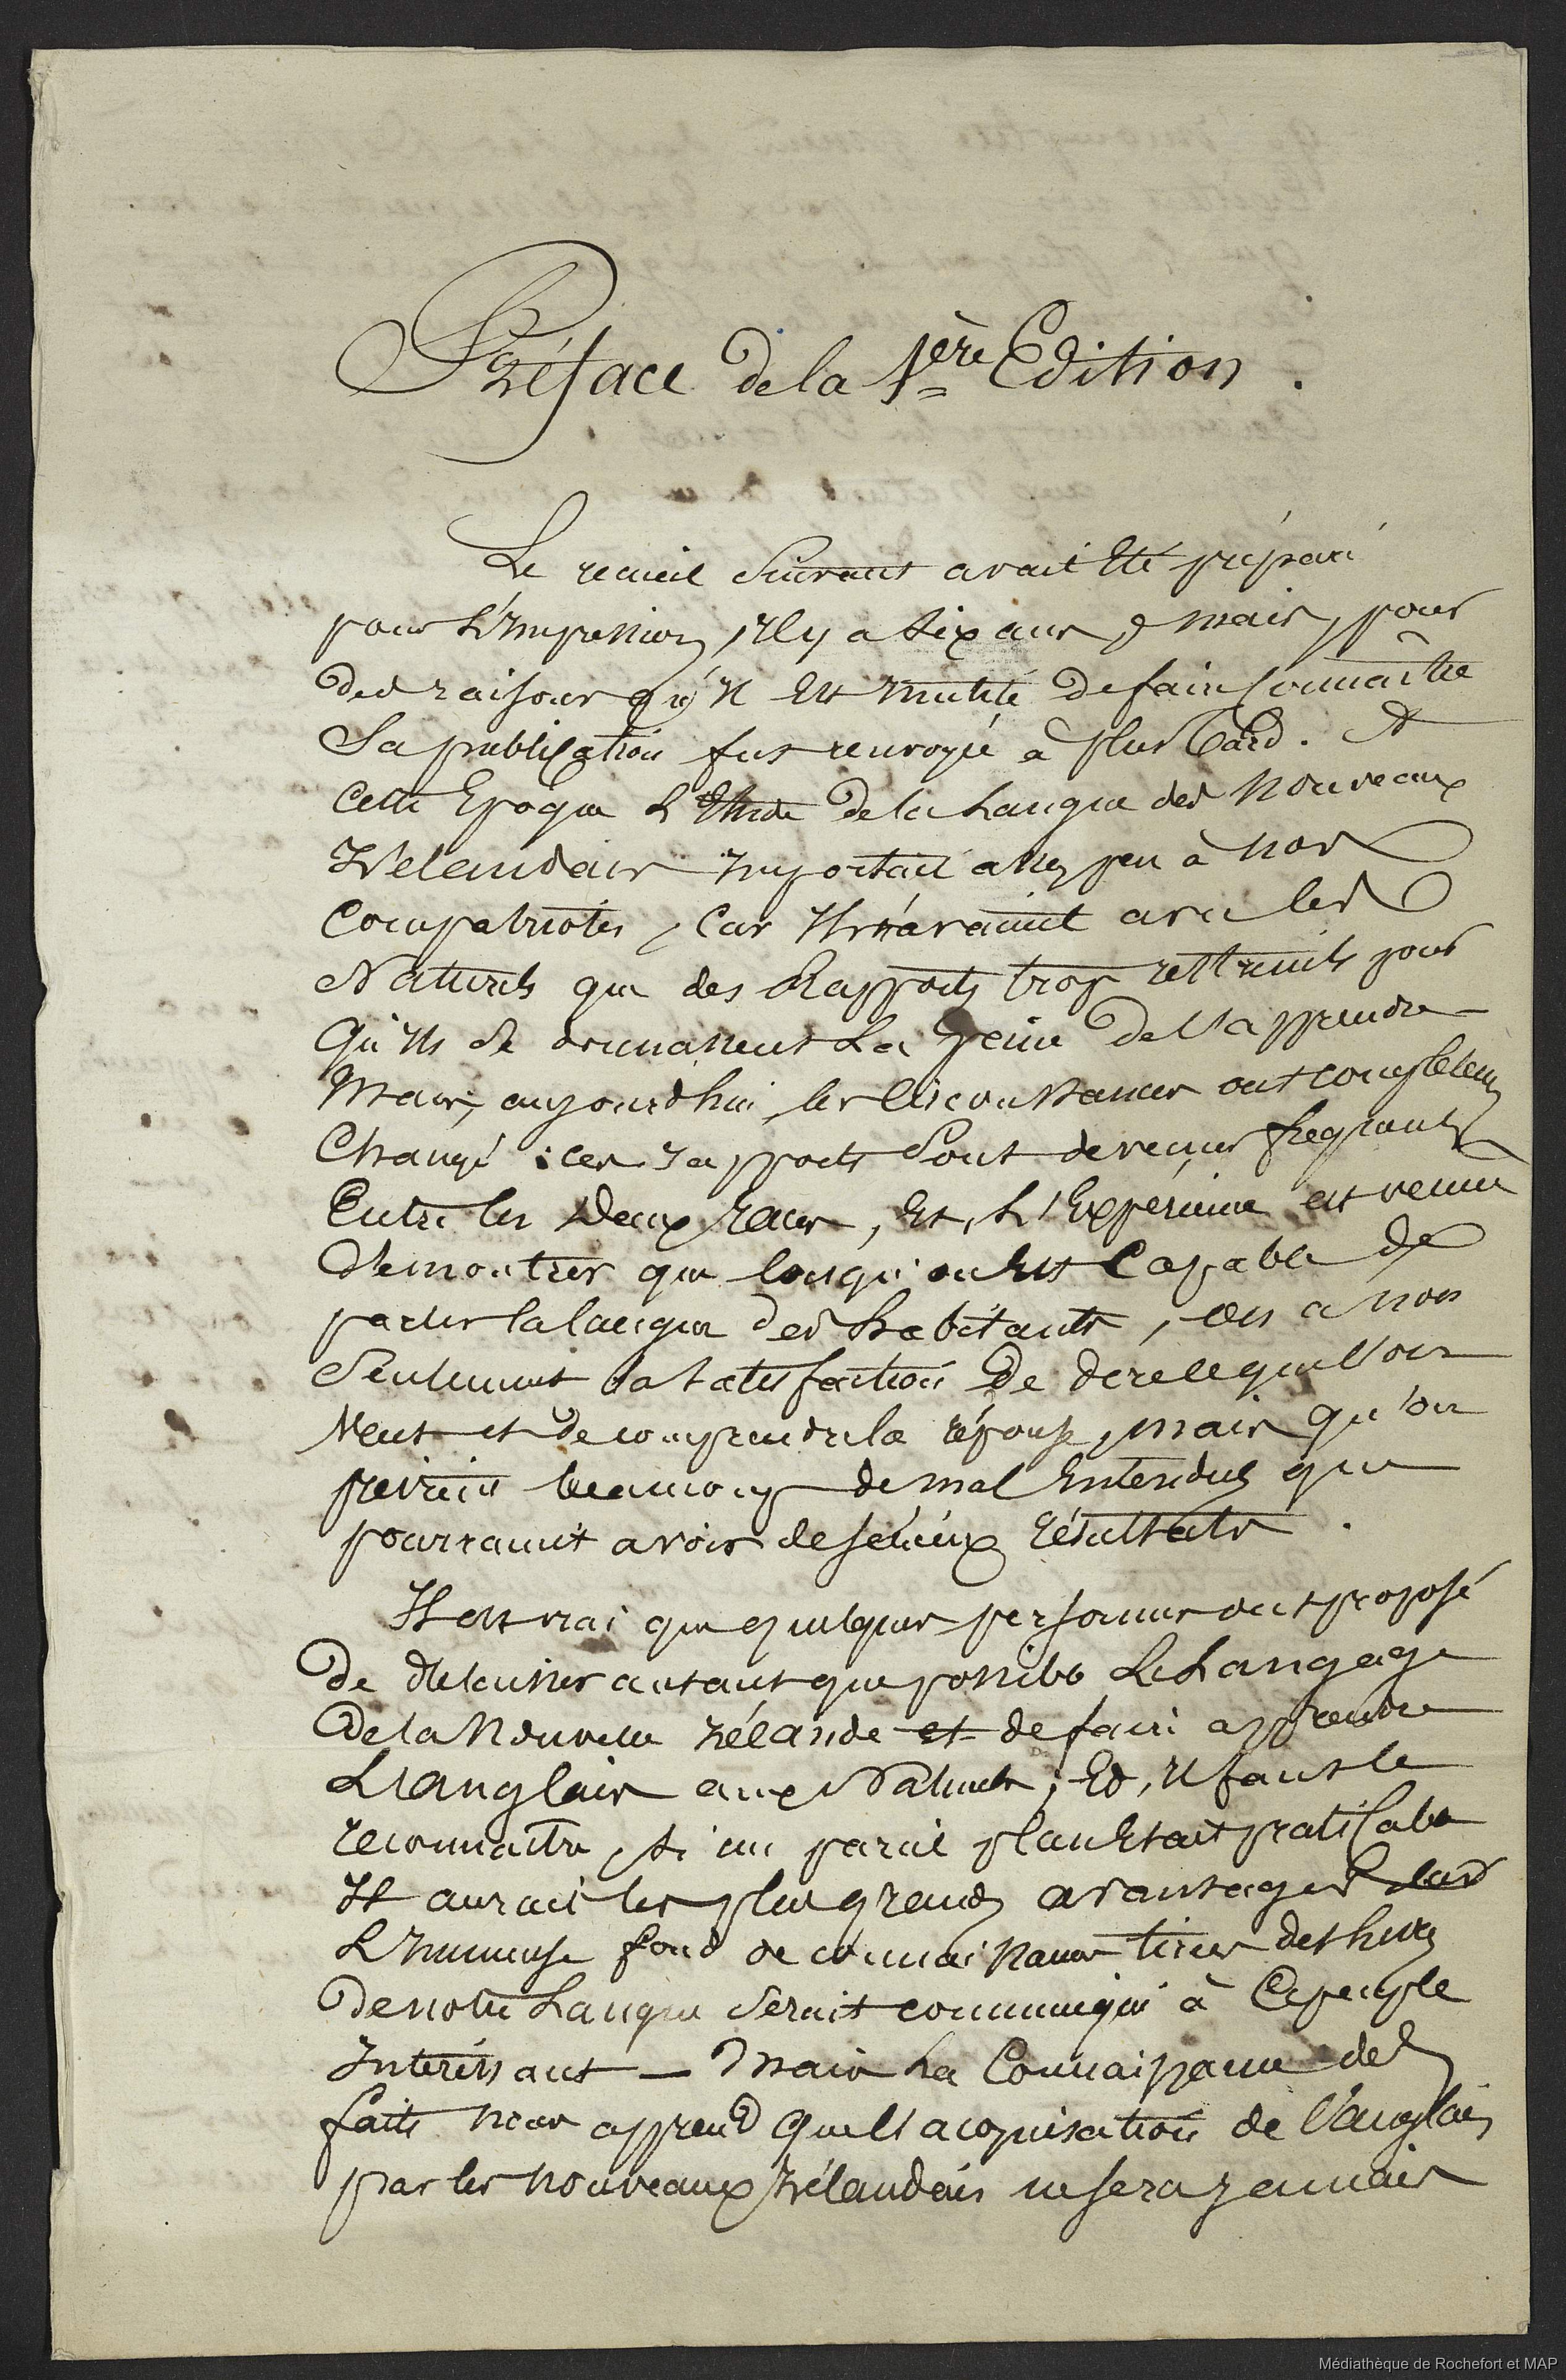 Préface de la 1ère Edition.
Le recueil Suivant avait été préparé
pour l'Impression, il y a dix ans, mais, pour
des raisons qu'il est inutile de faire Connaître
Sa publication fut renvoyée à plus tard. A
cette Epoque l'Etude de la Langue des Nouveaux
Zélandais importait assez peu à nos
Compatriotes, Car ils n'avaient avec les
Naturels que des Rapports trop restreints pour
qu'ils se donnassent La peine de l'apprendre
Mais, aujourd'hui, les Circonstances ont complètem
Changé : ces rapports Sont devenus fréquents
Entre les Deux races, Et, l'Expérience est venue
démontrer que lorsqu'on Est Capable de
parler la langue des habitants, on a non
Seulement la Satisfaction de dire ce que l'on
veut et de comprendre la réponse, mais qu'on
prévient beaucoup de mal Entendus qui
pourraient avoir de sérieux résultats.
Il est vrai que quelques personnes ont proposé
De délaisser autant que possible Le Langage
De la Nouvelle Zélande et de faire apprendre
L'anglais aux Naturels; Et, il faut le
reconnaître, si un pareil plan Etait praticable
Il aurait les plus grands avantages
L'Immense fond de connaissances tirées des livres
De notre Langue Serait communiqué à Ce peuple
Intéressant — Mais La Connaissance des
faits nous apprend que l'acquisation de l'anglais
par les nouveaux Zélandais ne sera jamais
Médiathèque de Rochefort et MAP